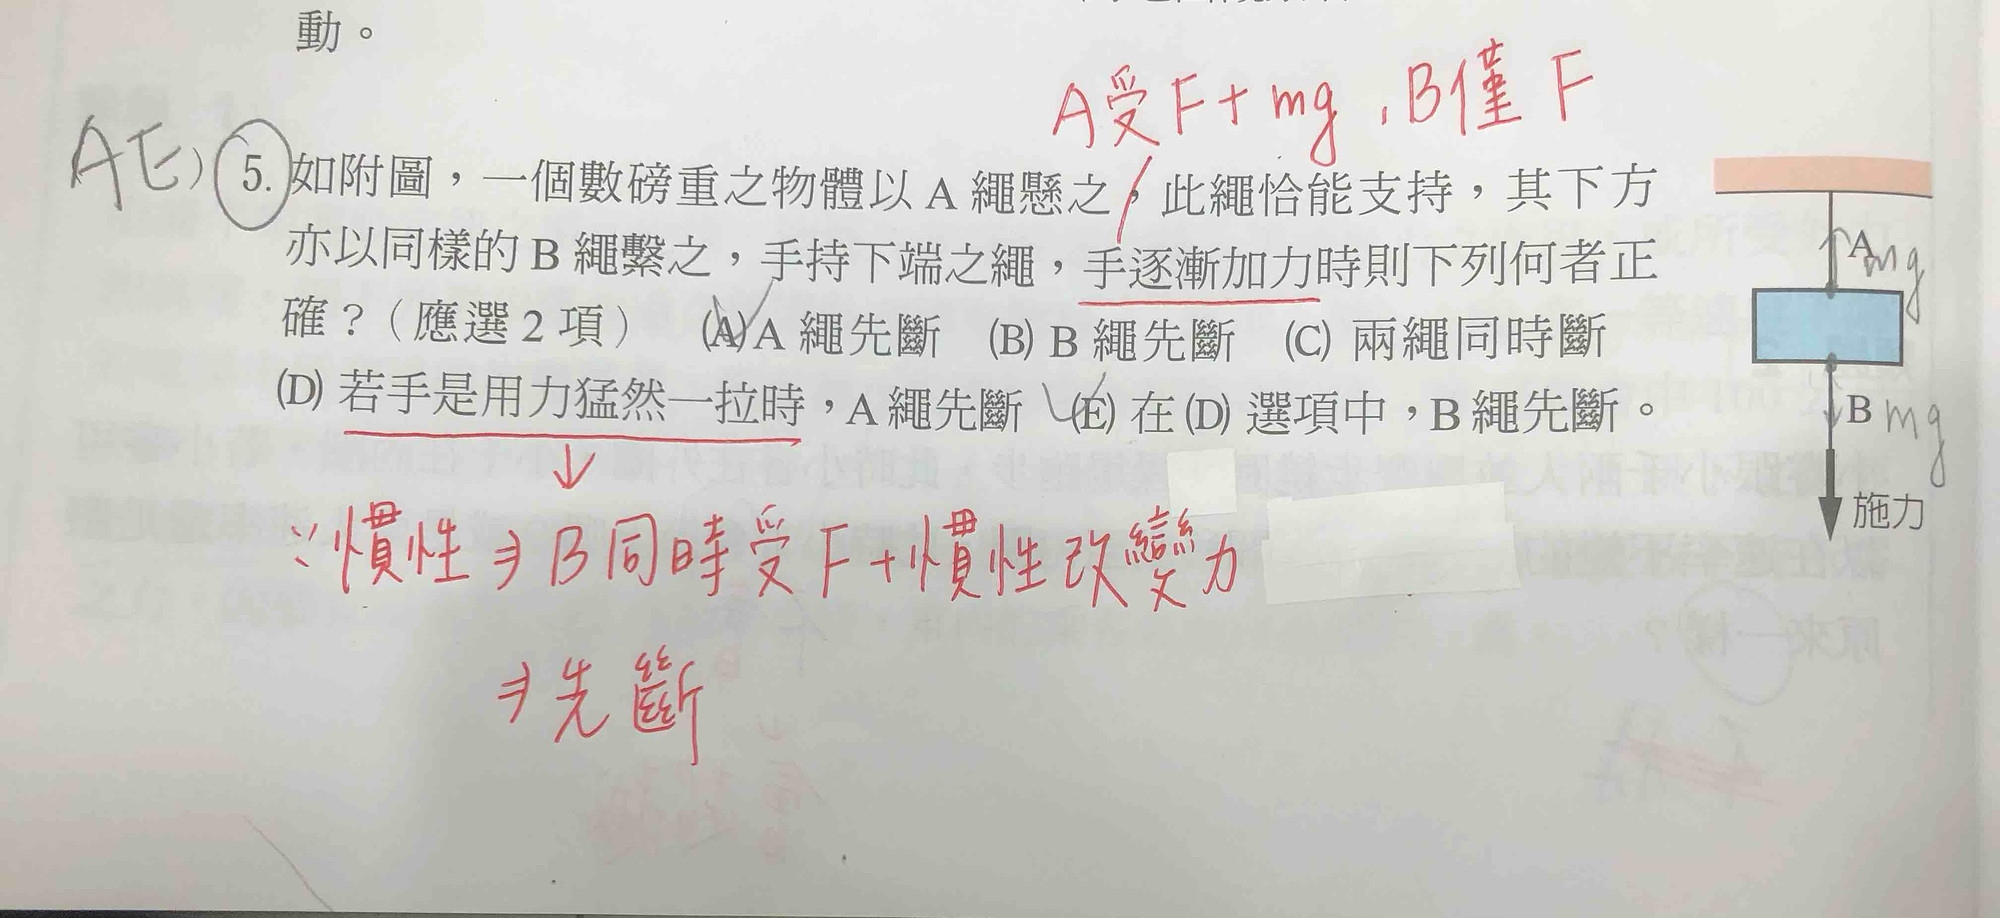 動。
A受F+mg,B僅F
AE)
5.如附圖,一個數磅重之物體以A繩懸之,此繩恰能支持,其下方
亦以同樣的B繩繫之,手持下端之繩,手逐漸加力時則下列何者正
確?(應選2項) (A)A繩先斷 (B)B繩先斷 (C)兩繩同時斷
(D)若手是用力猛然一拉時,A繩先斷 (E)在(D)選項中,B繩先斷。
A
mg
B
mg
施力
∵慣性⇒B同時受F+慣性改變力
⇒先斷